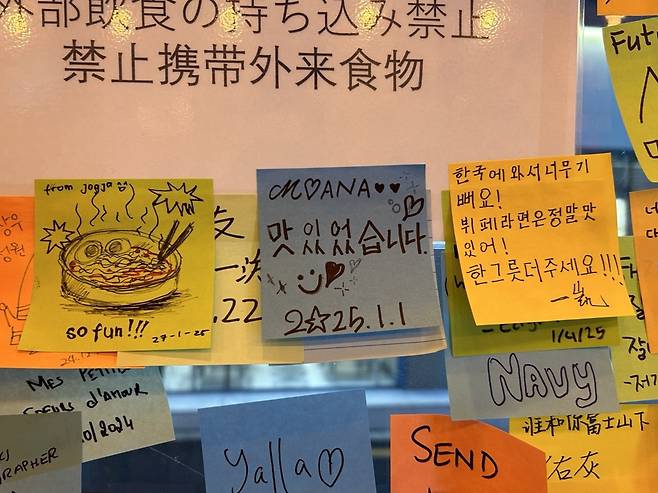 外部飲食の持ち込み禁止
禁止携带外来食物
Futu
from jogja
so fun!!!
27-1-25
友
一次
.22
M♡ANA♥♥
맛있었습니다.
2☆25.1.1
한국에와서너무기
뻐요!
뷔페라면은정말맛
있어!
한그릇더주세요!!!
1/4/25
NAVY
MES PETITS
COEURS D'AMOUR
/2024
GRAPHER
yalla♡
SEND
谁和你富士山下
佑灰